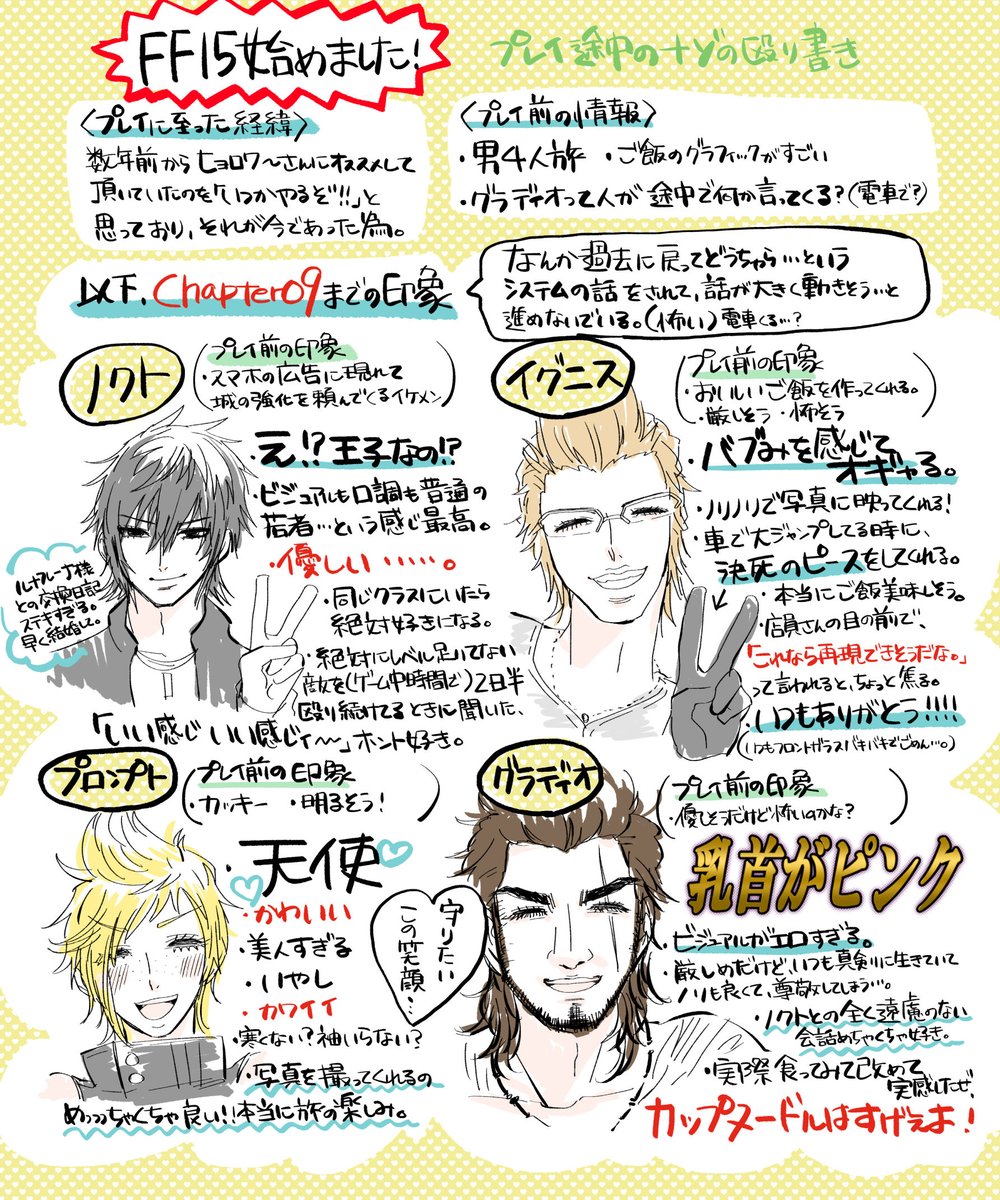 FF15始めました!
プレイ途中のナゾの殴り書き
〈プレイに至った経緯〉
数年前からヒョロワ〜さんにオススメして
頂いていたのを「いつかやるぞ!!」と
思っており、それが今であった為。
〈プレイ前の情報〉
・男4人旅 ・ご飯のグラフィックがすごい
・グラディオって人が途中で何か言ってくる?(電車で?)
以下、Chapter09までの印象
なんか過去に戻ってどうちゃら…という
システムの話をされて、話が大きく動きそう…と
進めないでいる。(怖い)電車くる…?
ノクト
プレイ前の印象
・スマホの広告に現れて
城の強化を頼んでくるイケメン
・え!?王子なの!?
・ビジュアルも口調も普通の
若者…という感じ最高。
・優しい・・・・・。
・同じクラスにいたら
絶対好きになる。
・絶対にレベル足りてない
敵を(ゲーム中時間で)2日半
殴り続けてるときに聞いた、
「いい感じいい感じィ〜」ホント好き。
ルナフレーナ様
との交換日記
ステキすぎる。
早く結婚して。
イグニス
プレイ前の印象
・おいしいご飯を作ってくれる。
・厳しそう ・怖そう
・バブみを感じて
オギャる。
・ノリノリで写真に映ってくれる!
・車で大ジャンプしてる時に、
決死のピースをしてくれる。
・本当にご飯美味しそう。
・店員さんの目の前で、
「これなら再現できそうだな。」
って言われると、ちょっと焦る。
・いつもありがとう!!!!
(いつもフロントガラスバキバキでごめん…。)
プロンプト
プレイ前の印象
・カッキー ・明るそう!
・天使
・かわいい
・美人すぎる
・いやし
・カワイイ
・寒くない?袖いらない?
・写真を撮ってくれるの
めっっちゃくちゃ良い!!本当に旅の楽しみ。
グラディオ
プレイ前の印象
・優しそうだけど怖いのかな?
乳首がピンク
守りたい
この笑顔…
・ビジュアルがエロすぎる。
・厳しめだけど、いつも真剣に生きていて
ノリも良くて、尊敬してしまう…。
・ノクトとの全く遠慮のない
会話めちゃくちゃ好き。
・実際食ってみて改めて
実感したぜ、
カップヌードルはすげえよ!